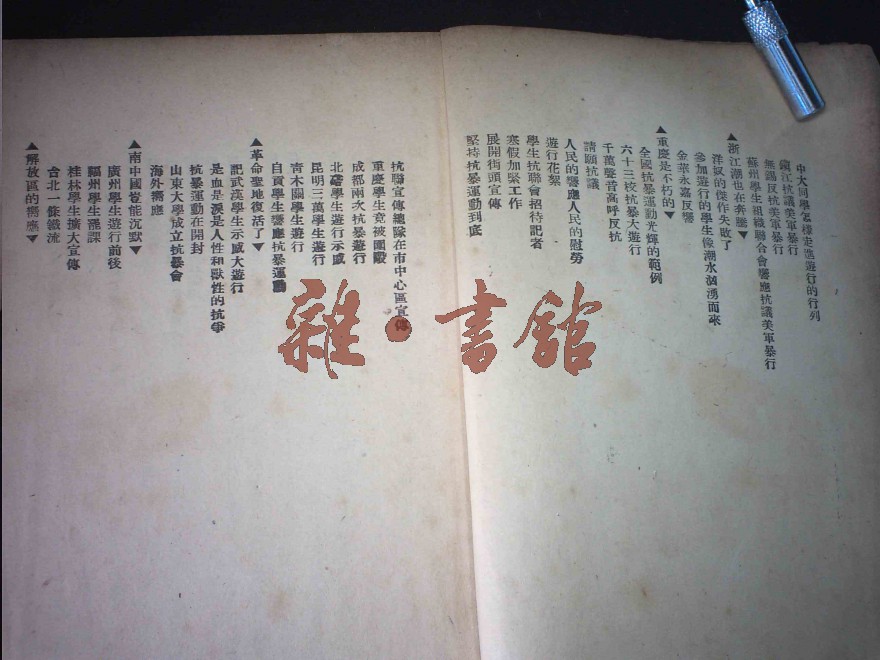 中大同學怎樣走進遊行的行列
鎮江抗議美軍暴行
無錫反抗美軍暴行
蘇州學生組織聯合會響應抗議美軍暴行
▲浙江潮也在奔騰▼
洋奴的傑作失敗了
參加遊行的學生像潮水洶湧而來
金華永嘉反響
▲重慶是不朽的▼
全國抗暴運動光輝的範例
六十三校抗暴大遊行
千萬聲音高呼反抗
請願抗議
人民的響應人民的慰勞
遊行花絮
學生抗聯會招待記者
寒假加緊工作
展開街頭宣傳
堅持抗暴運動到底
抗聯宣傳總隊在市中心區宣傳
重慶學生竟被團毆
成都兩次抗暴遊行
北碚學生遊行示威
昆明三萬學生遊行
青木關學生遊行
自貢學生響應抗暴運動
▲革命聖地復活了▼
記武漢學生示威大遊行
是血是淚是人性和獸性的抗爭
抗暴運動在開封
山東大學成立抗暴會
海外嚮應
▲南中國豈能沉默▼
廣州學生遊行前後
福州學生罷課
桂林學生擴大宣傳
台北一條鐵流
▲解放區的嚮應▼
雜·書館